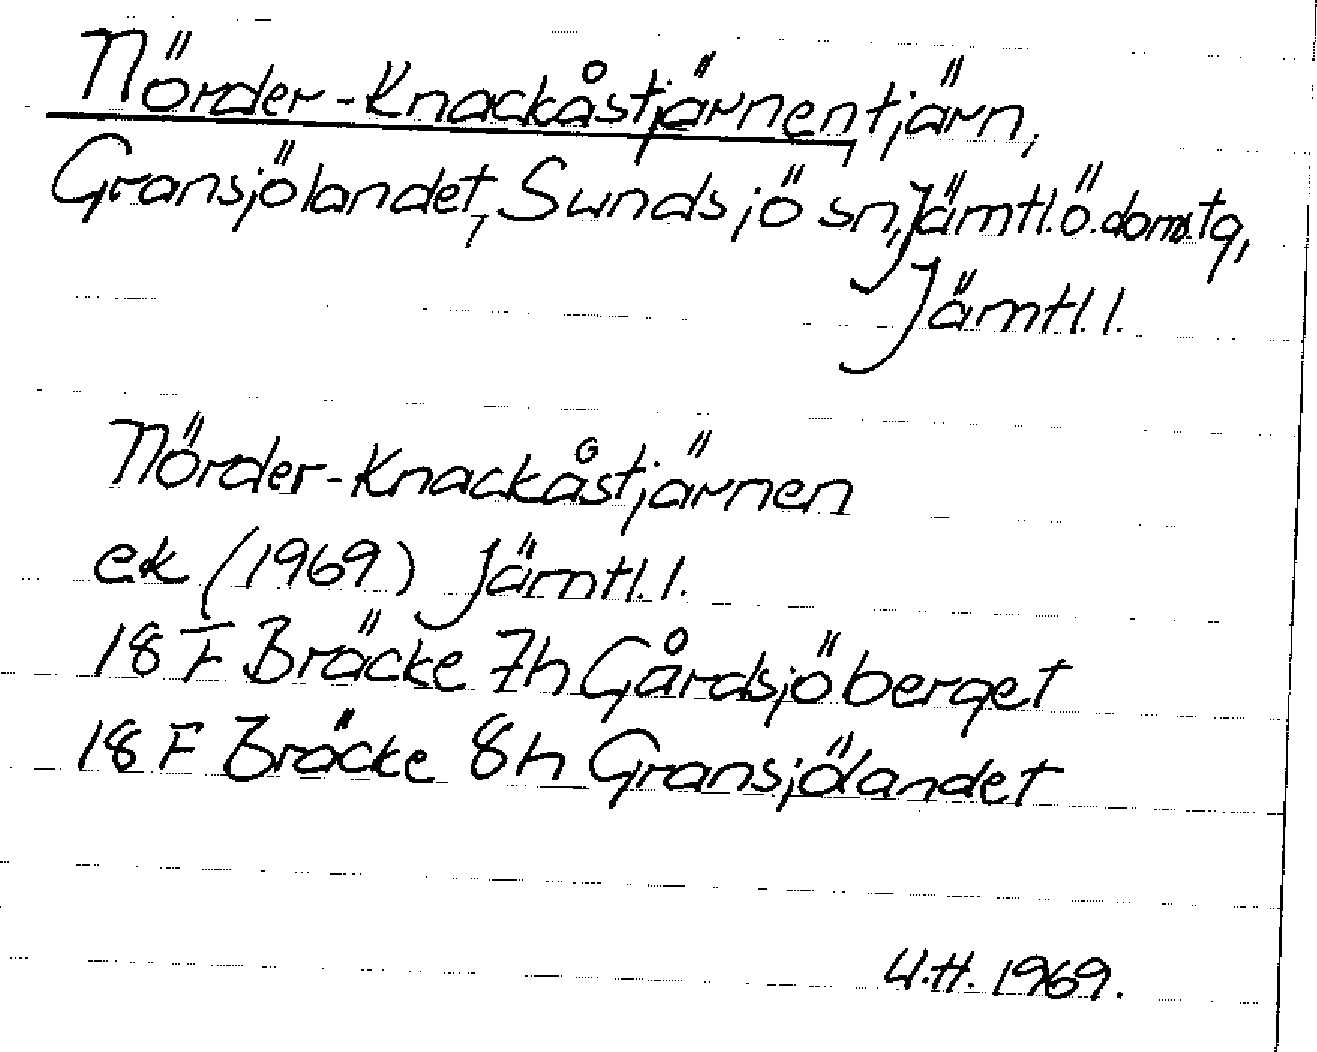 Nörder-Knackåstjärnen, tjärn,
Gransjölandet, Sundsjö sn, Jämtl.ö.doms.tg,
Jämtl.l.
Nörder-Knackåstjärnen
ek (1969) Jämtl.l.
18 F Bräcke 7h Gårdsjöberget
18 F Bräcke 8h Gransjölandet
U.H. 1969.